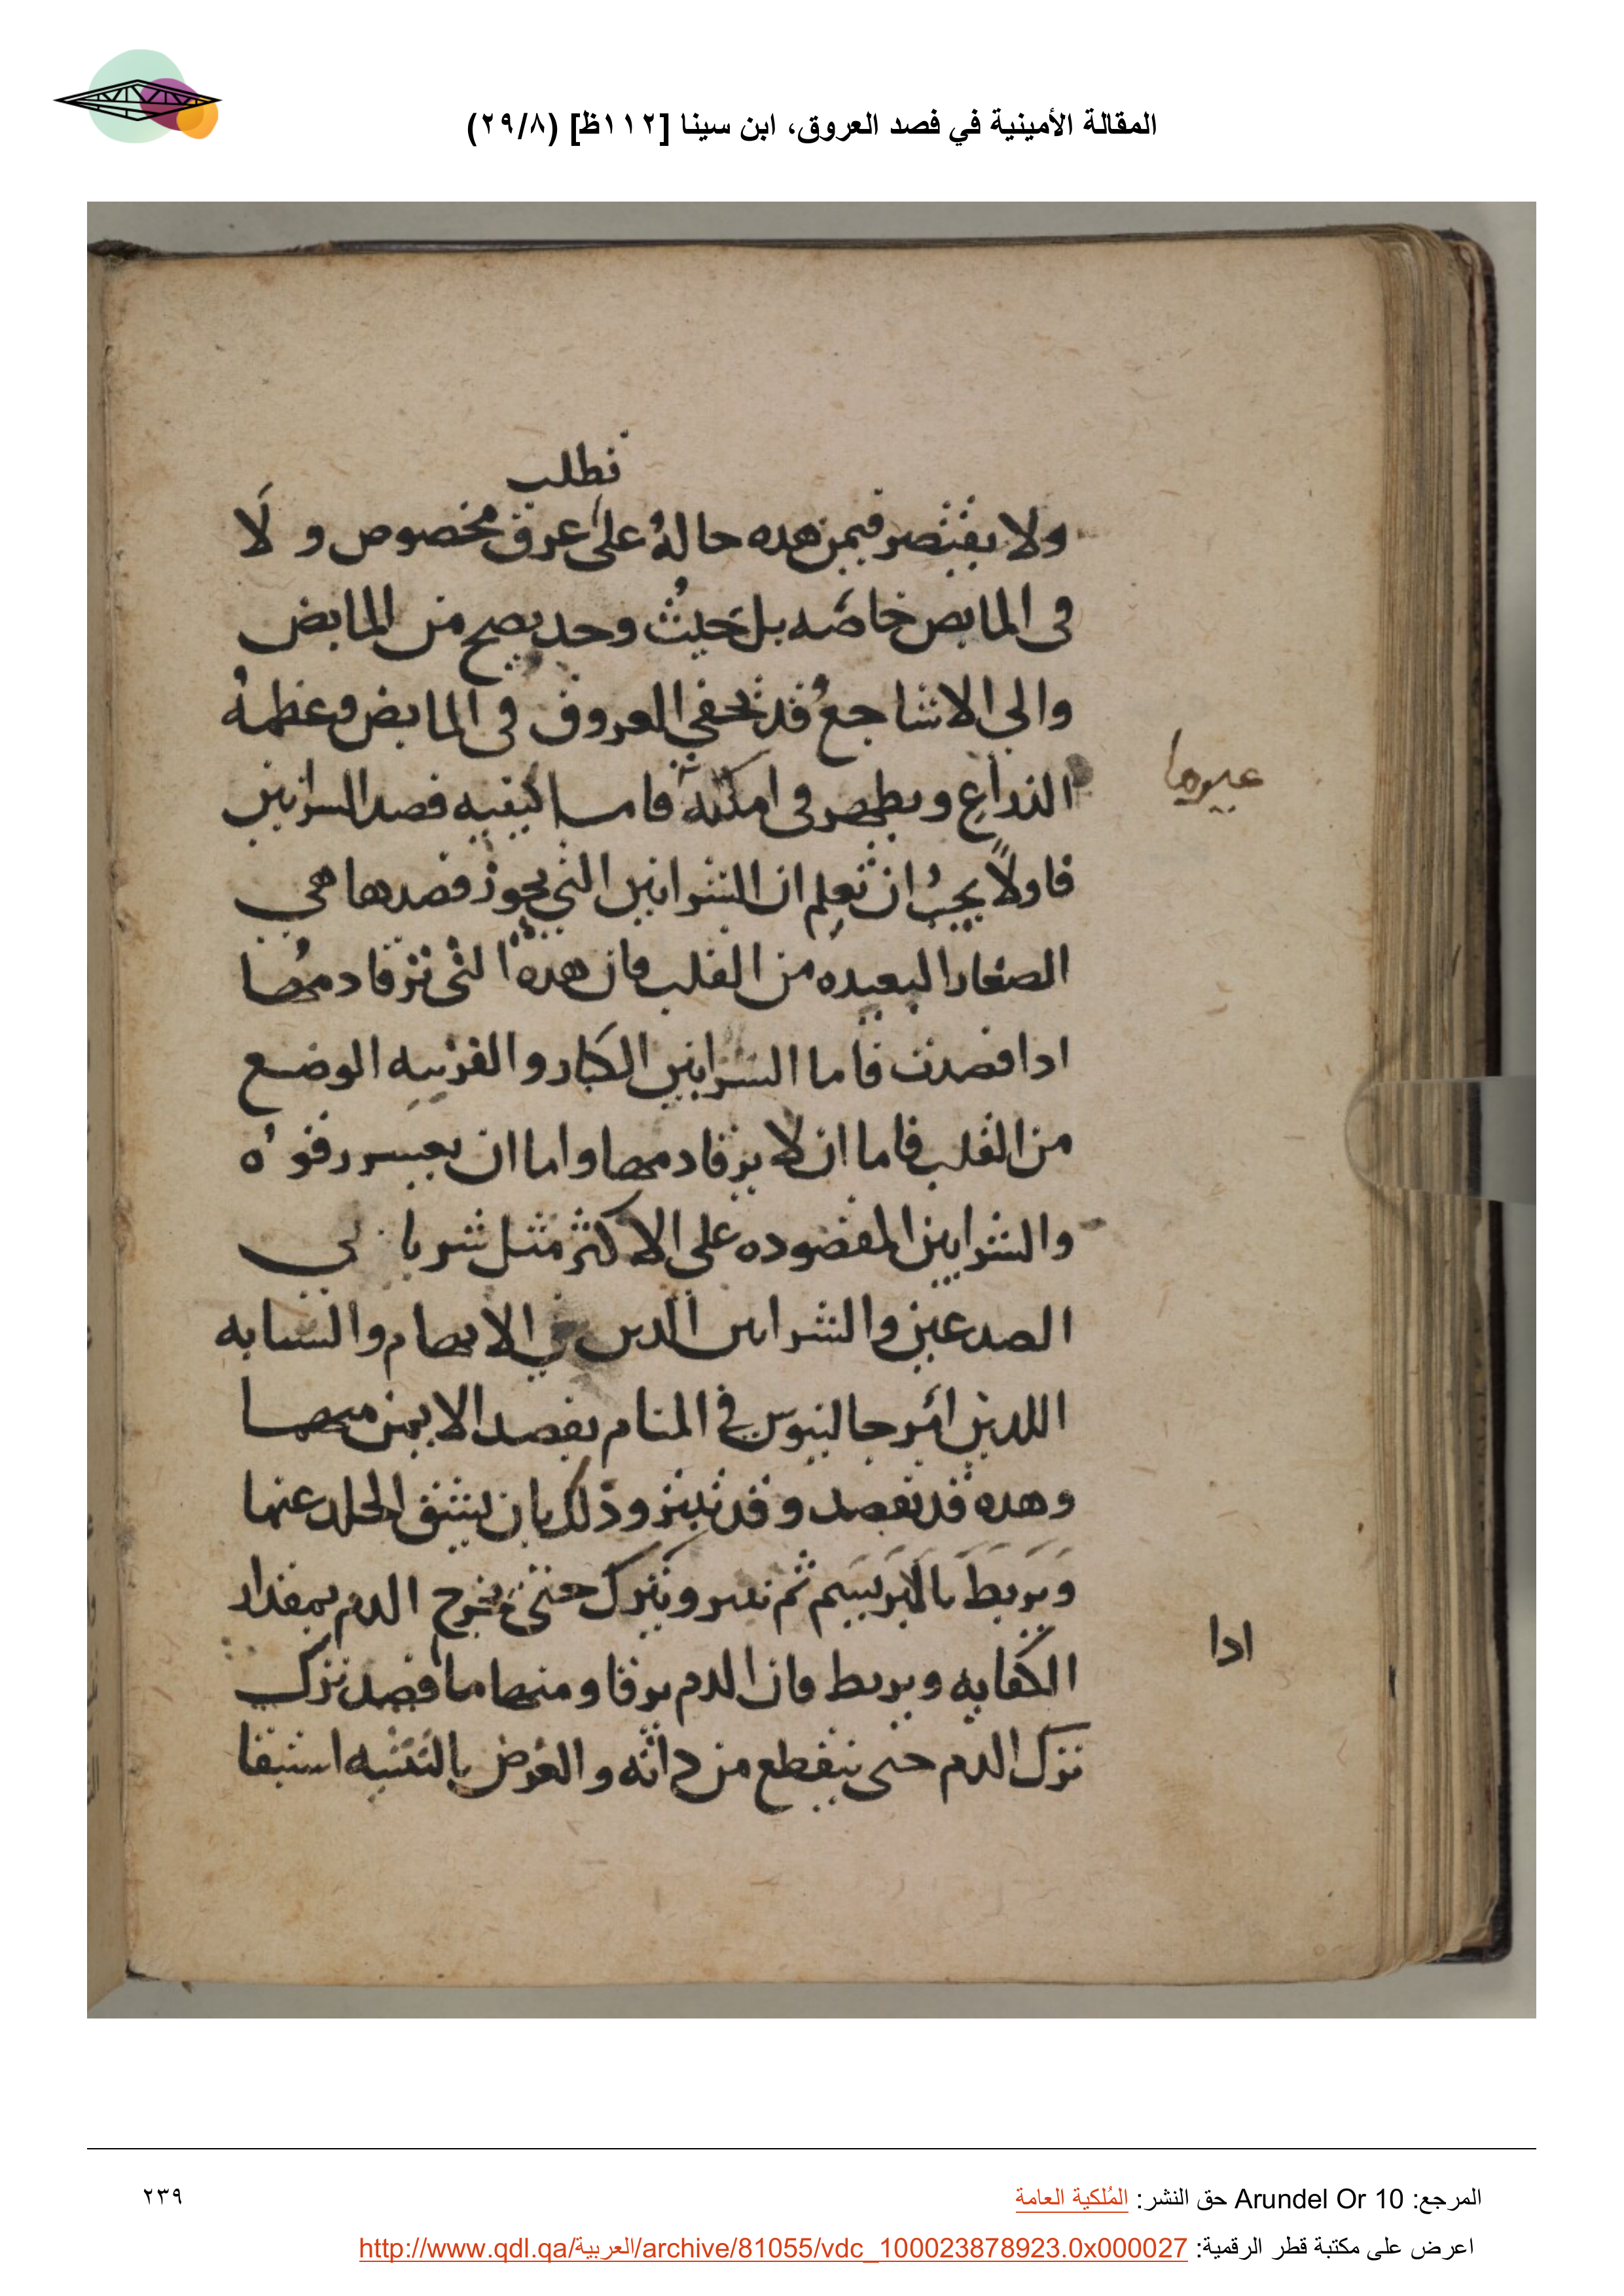 المقالة الأمينية في فصد العروق، ابن سينا [١١٢ظ] (٢٩/٨)
نطلب
ولا يقتصر فيمن هذه حاله على عرق مخصوص ولا
فى المابض خاصه بل حيث وجد يصح من المابض
والى الاشاجع قد تخفي العروق فى المابض وعظمه
الذراع ويظهر فى امكنة فاما كيفيه فصد الشرايين
فاولاً يجب ان تعلم ان الشرايين التى يجوز فصدها هي
الصغار البعيده من القلب فان هذه التى ترقا دمها
اذا فصدت فاما الشرايين الكبار والقريبه الوضع
من القلب فاما ان لا يرقا دمها واما ان يعسر رقوه
والشرايين المفصوده على الاكثر مثل شرياني
الصدغين والشرايين الذين في الابهام والسبابه
اللذين امر جالينوس في المنام بفصد الايمن منهما
وهذه قد تفصد وقد تبتر وذلك بان يشق الجلد عنها
ويربط بالابريسم ثم تبتر وتترك حتى يخرج الدم بمقدار
الكفايه ويربط فان الدم يرقا ومنها ما فصد ترك
ترك الدم حتى ينقطع من ذاته والغرض بالتنبيه استبقا
اذا
المرجع: Arundel Or 10 حق النشر: المُلكية العامة
٢٣٩
اعرض على مكتبة قطر الرقمية: http://www.qdl.qa/العربية/archive/81055/vdc_100023878923.0x000027